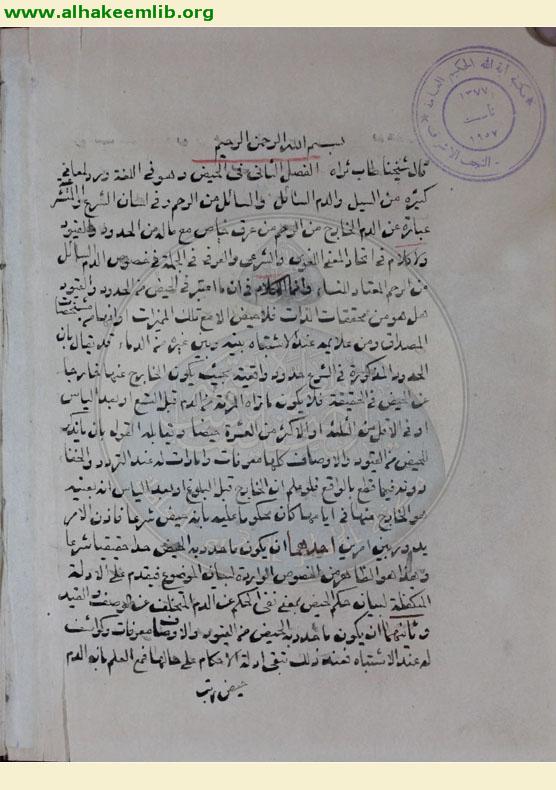 www.alhakeemlib.org
مكتبة آية الله الحكيم العامة
١٣٧٧
تأسست
١٩٥٧
النجف الاشرف
بسم الله الرحمن الرحيم
قال شيخنا طاب ثراه الفصل الثاني في الحيض وهو في اللغة ورد لمعاني
كثيرة من السيل والدم السائل والسائل من الرحم وفي لسان الشرع والمتشرعة
عبارة عن الدم الخارج من الرحم من عرق خاص مع ماله من الحدود والقيود
ولا كلام في اتحاد المعنى اللغوي والشرعي والعرفي في الجملة في خصوص الدم السائل
من الرحم المعتاد للنساء وانما الكلام في ان ما اعتبر في الحيض من الحدود والقيود
هل هو من محققات الذات فلا حيض الا مع تلك المميزات او انها من مشخصات
المصداق ومن علايمه عند الاشتباه بينه وبين غيره من الدماء فلا يقال بان
الحدود المذكورة في الشرع حدود واقعية بحيث يكون الخارج عنها خارجا
عن الحيض في الحقيقة فلا يكون ما تراه المرئة من الدم قبل التسع او بعد الياس
او في الاقل من الثلثة او الاكثر من العشرة حيضا ويقابله القول بان ما يذكر
للحيض من القيود والاوصاف كلها معرفات وامارات له عند التردد والخفاء
دونه فيما قطع بالواقع فلو علم ان الخارج قبل البلوغ او بعد الياس انه بعينه
هو الخارج عنها في ايامها كان محكوما عليه بانه حيض شرعا فاذن الامر
يدور بين امرين احدهما ان يكون ما حدد به الحيض حدا حقيقيا شرعا
وهذا هو الظاهر من النصوص الواردة لبيان الموضوع فيقدم على الادلة
المتكفلة لبيان حكم الحيض بمعنى نفي الحكم عن الدم المتخلف عن الوصف والقيد
وثانيهما ان يكون ما حدد به الحيض من القيود والاوصاف معرفات وكواشف
له عند الاشتباه فعند ذلك تبقى ادلة الاحكام على حالها فمع العلم بانه الدم
حيض يرتب